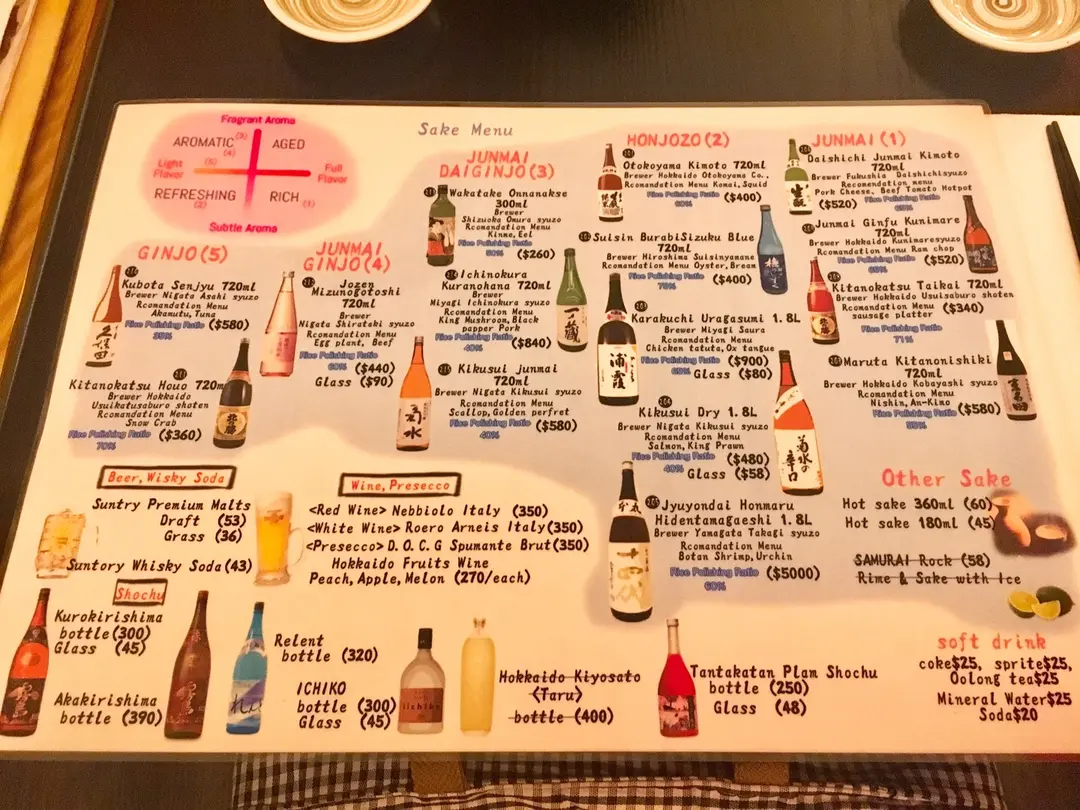 Sake Menu
Fragrant Aroma
AROMATIC (3) (4)
AGED
Light Flavor (5)
Full Flavor
REFRESHING (2)
RICH (1)
Subtle Aroma
GINJO(5)
Kubota Senjyu 720ml
Brewer Nigata Asahi syuzo
Rcomandation Menu
Akamutu, Tuna
Rice Polishing Ratio ($580)
Kitanokatsu Houo 720m
Brewer Hokkaido
Usuikatusaburo shoten
Rcomandation Menu
Snow Crab
Rice Polishing Ratio ($360)
70%
JUNMAI
GINJO(4)
Jozen
Mizunogotoshi
720ml
Brewer
Nigata Shirataki syuzo
Rcomandation Menu
Egg plant, Beef
Rice Polishing Ratio
60% ($440)
Glass ($90)
JUNMAI
DAIGINJO(3)
Wakatake Onnanakse
300ml
Brewer
Shizuoka Omura syuzo
Rcomandation Menu
Kinme, Eel
Rice Polishing Ratio
50% ($260)
Ichinokura
Kuranohana 720ml
Brewer
Miyagi Ichinokura syuzo
Rcomandation Menu
King Mushroom, Black
papper Pork
Rice Polishing Ratio ($840)
40%
Kikusui Junmai
720ml
Brewer Nigata Kikusui syuzo
Rcomandation Menu
Scallop, Golden perfret
Rice Polishing Ratio ($580)
40%
HONJOZO(2)
Otokoyama Kimoto 720ml
Brewer Hokkaido Otokoyama Co.,
Rcomandation Menu Komai, Squid
Rice Polishing Ratio ($400)
60%
Suisin BurabiSizuku Blue
720ml
Brewer Hiroshima Suisinyamane
Rcomandation Menu Oyster, Bream
Rice Polishing Ratio ($400)
70%
Karakuchi Uragasumi 1.8L
Brewer Miyagi Saura
Rcomandation Menu
Chicken tatuta, Ox tangue
Rice Polishing Ratio ($900)
Glass ($80)
Kikusui Dry 1.8L
Brewer Nigata Kikusui syuzo
Rcomandation Menu
Salmon, King Prawn
Rice Polishing Ratio ($480)
40%
Glass ($58)
Jyuyondai Honmaru
Hidentamagaeshi 1.8L
Brewer Yamagata Takagi syuzo
Rcomandation Menu
Botan Shrimp, Urchin
Rice Polishing Ratio ($5000)
60%
JUNMAI(1)
Daishichi Junmai Kimoto
720ml
Brewer Fukushia Daishichisyuzo
Recomendation menu
Pork Cheese, Beef Tomato Hotpot
Rice Polishing Ratio
($520)
Junmai Ginfu Kunimare
720ml
Brewer Hokkaido Kunimaresyuzo
Rcomandation Menu Ram chop
Rice Polishing Ratio ($520)
Kitanokatsu Taikai 720ml
Brewer Hokkaido Usuisaburo shoten
Rcomandation Menu
sausage platter ($340)
Rice Polishing Ratio
71%
Maruta Kitanonishiki
720ml
Brewer Hokkaido Kobayashi syuzo
Rcomandation Menu
Nishin, An-Kimo
Rice Polishing Ratio ($580)
Beer, Wisky Soda
Suntry Premium Malts
Draft (53)
Grass (36)
Suntory Whisky Soda(43)
Wine, Presecco
<Red Wine> Nebbiolo Italy (350)
<White Wine> Roero Arneis Italy(350)
<Presecco> D.O.C.G Spumante Brut(350)
Hokkaido Fruits Wine
Peach, Apple, Melon (270/each)
Other Sake
Hot sake 360ml (60)
Hot sake 180ml (45)
SAMURAI Rock (58)
Rime & Sake with Ice
Shochu
Kurokirishima
bottle(300)
Glass (45)
Akakirishima
bottle (390)
Relent
bottle (320)
ICHIKO
bottle (300)
Glass (45)
Hokkaido Kiyosato
(Taru)
bottle (400)
Tantakatan Plam Shochu
bottle (250)
Glass (48)
soft drink
coke$25, sprite$25,
Oolong tea$25
Mineral Water$25
Soda$20
久保田
北の勝
一ノ蔵
浦霞
菊水の辛口
十四代
iichiko